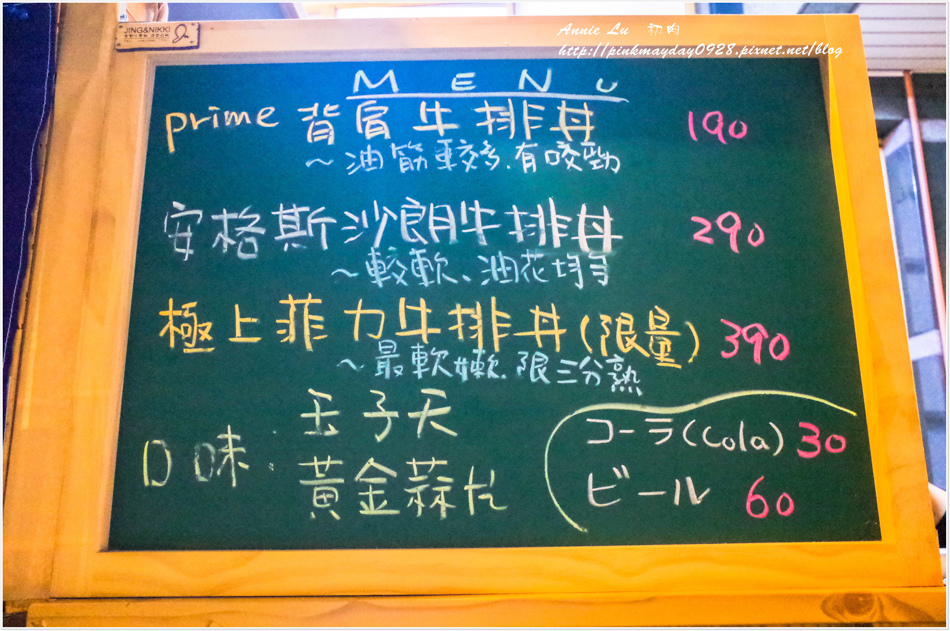 JING&NIKKI
Annie Lu 初肉
http://pinkmayday0928.pixnet.net/blog
MENu
prime 背肩牛排丼 190
～油筋較多.有咬勁
安格斯沙朗牛排丼 290
～較軟、油花均勻
極上菲力牛排丼(限量) 390
～最軟嫩.限三分熟
口味: 玉子天
黃金蒜片
コーラ(Cola) 30
ビール 60